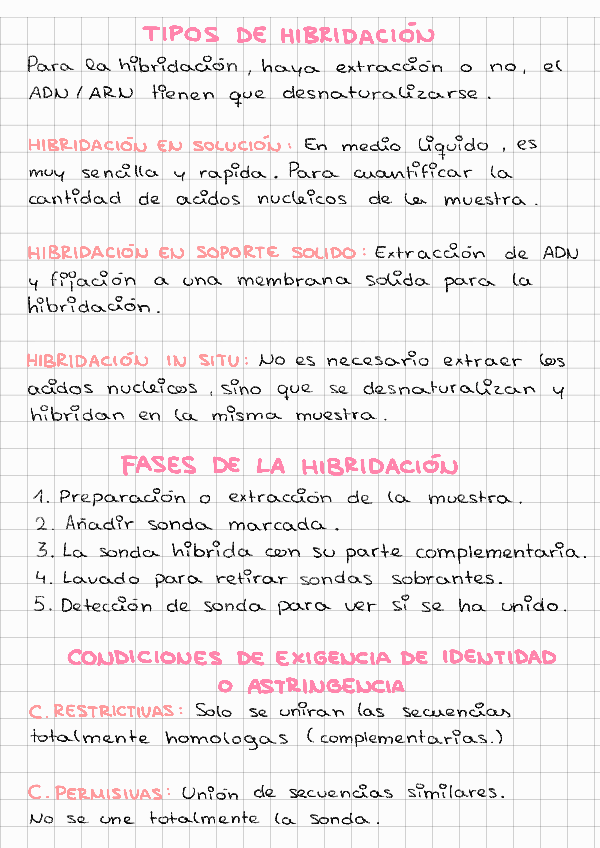 TIPOS DE HIBRIDACIÓN
Para la hibridación, haya extracción o no, el
ADN / ARN tienen que desnaturalizarse.
HIBRIDACIÓN EN SOLUCIÓN: En medio líquido, es
muy sencilla y rapida. Para cuantificar la
cantidad de acidos nucleicos de la muestra.
HIBRIDACIÓN EN SOPORTE SOLIDO: Extracción de ADN
y fijación a una membrana solida para la
hibridación.
HIBRIDACIÓN IN SITU: No es necesario extraer los
acidos nucleicos, sino que se desnaturalizan y
hibridan en la misma muestra.
FASES DE LA HIBRIDACIÓN
1. Preparación o extracción de la muestra.
2. Añadir sonda marcada.
3. La sonda hibrida con su parte complementaria.
4. Lavado para retirar sondas sobrantes.
5. Detección de sonda para ver si se ha unido.
CONDICIONES DE EXIGENCIA DE IDENTIDAD
O ASTRINGENCIA
C. RESTRICTIVAS: Solo se uniran las secuencias
totalmente homologas (complementarias.)
C. PERMISIVAS: Unión de secuencias similares.
No se une totalmente la sonda.